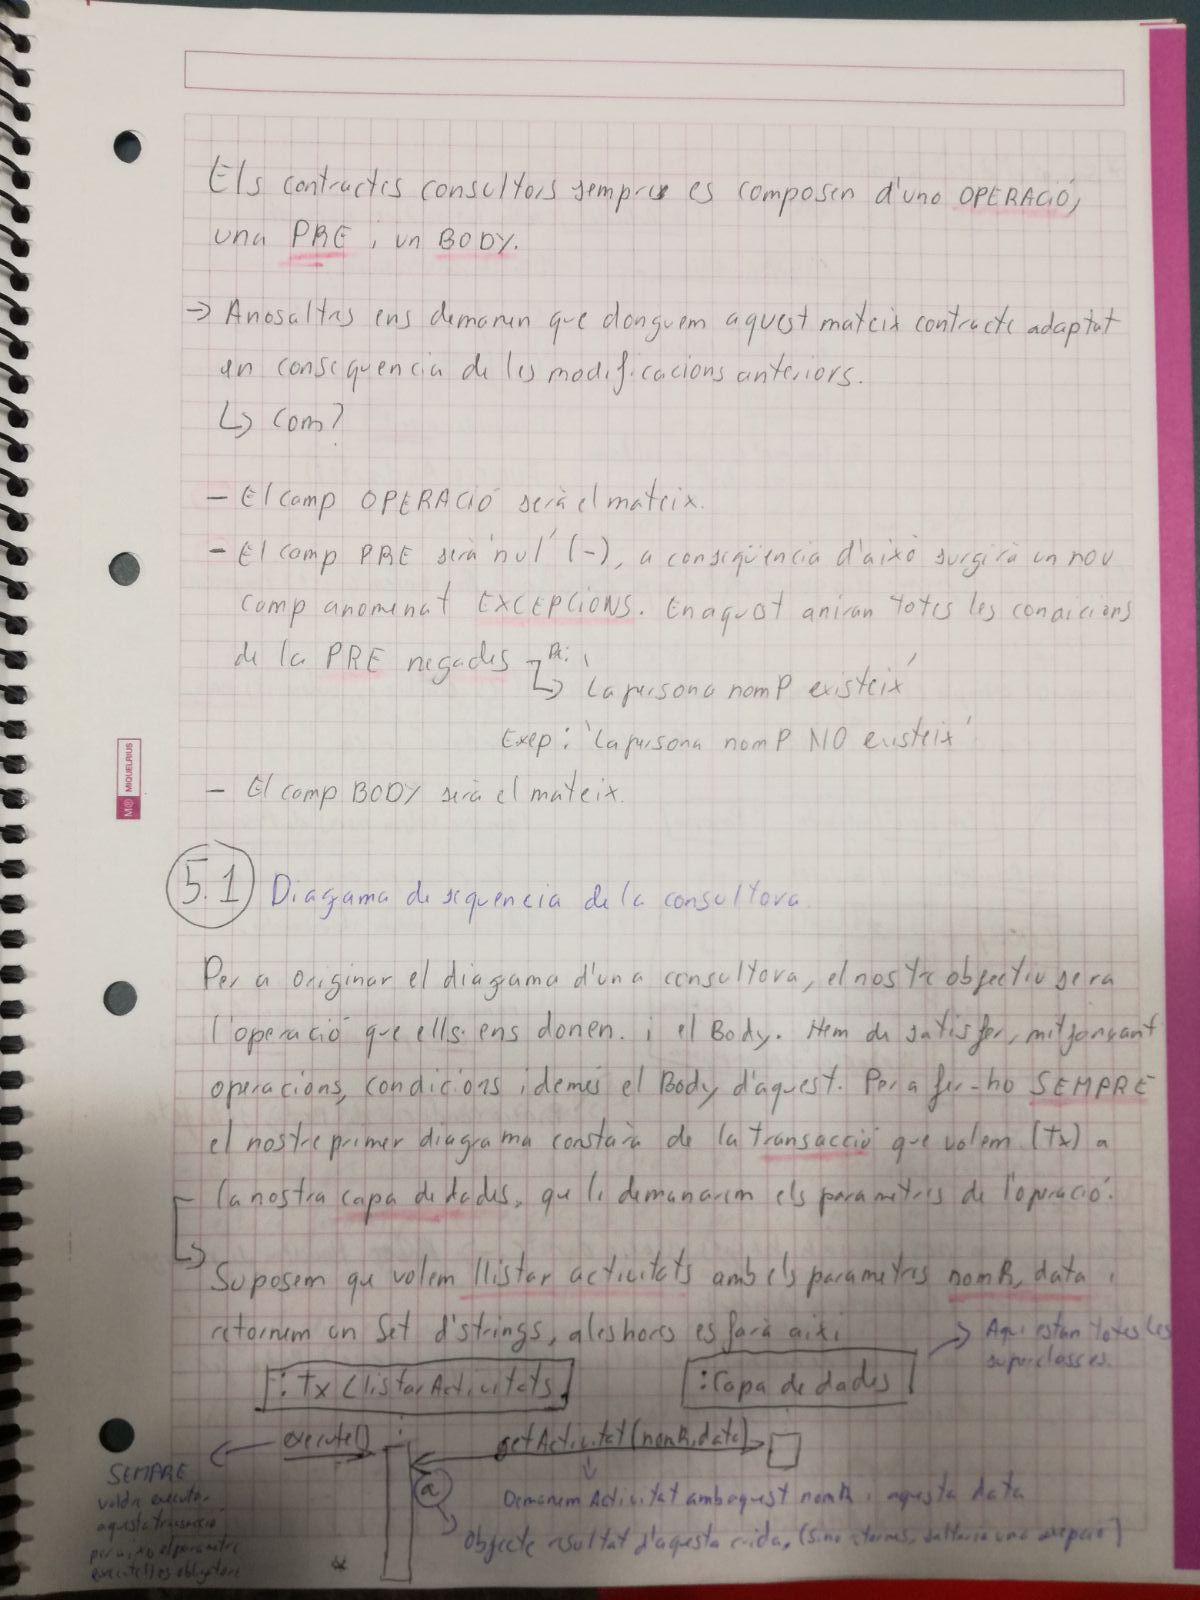 Els contractes consultors sempre es composen d'una OPERACIÓ,
una PRE i un BODY.
→ Anosaltres ens demanen que donguem aquest mateix contracte adaptat
en consequencia de les modificacions anteriors.
↳ Com?
- El camp OPERACIÓ serà el mateix.
- El camp PRE serà 'nul' (-), a conseqüencia d'això surgirà un nou
camp anomenat EXCEPCIONS. En aquest aniran totes les condicions
de la PRE negades
'La persona nomP existeix'
Exep: 'La persona nomP NO existeix'
- El camp BODY serà el mateix.
M® MIQUELRIUS
5.1 Diagama de sequencia de la consultora.
Per a originar el diagama d'una consultora, el nostre objectiu sera
l'operació que ells ens donen. i el Body. Hem de satisfer, mitjançant
operacions, condicions i demés el Body d'aquest. Per a fer-ho SEMPRE
el nostre primer diagrama constarà de la transacció que volem (Tx) a
la nostra capa de dades, que li demanarem els parametres de l'operació.
Suposem que volem llistar activitats amb els parametres nomR, data i
retornem un Set d'strings, aleshores es farà així
Aqui estan totes les
superclasses.
:Tx LlistarActivitats
:Capa de dades
execute()
getActivitat(nomR, data)
SEMPRE
voldre executar
aquesta transacció
per aixo el parametre
execute() es obligatori
a
Demanem Activitat amb aquest nomR i aquesta data
Objecte resultat d'aquesta crida, (Si no saltaria una exepció)
*